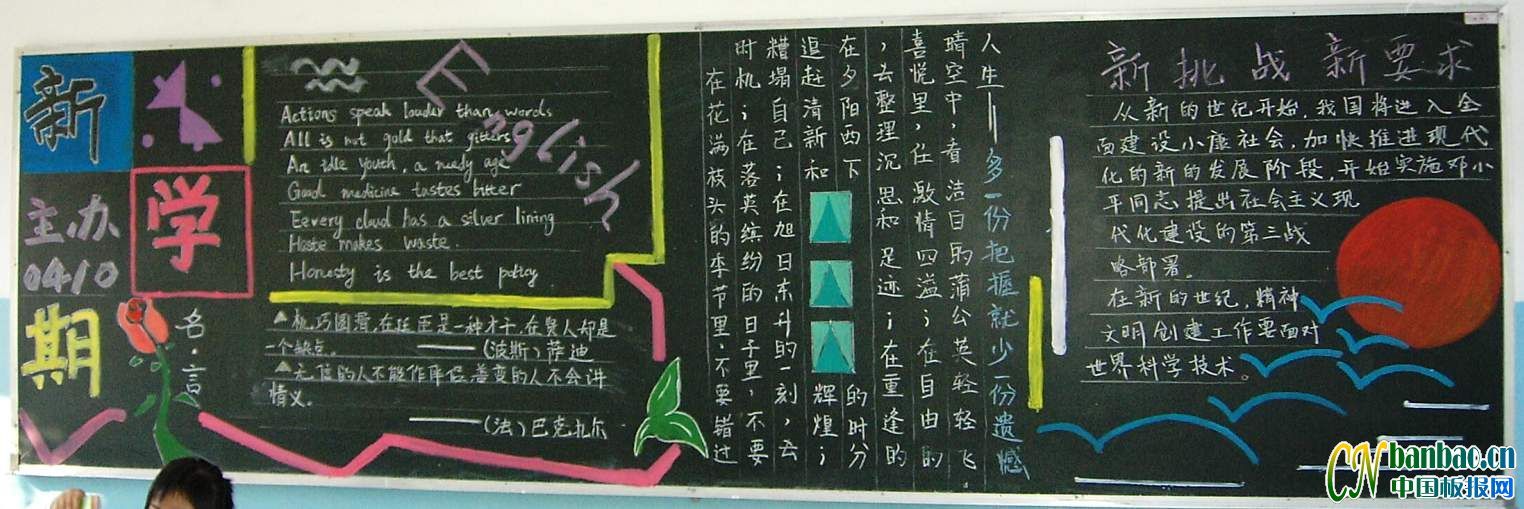 新
学
期
主办
0410
English
Actions speak louder than words
All is not gold that gitters
An idle youth, a needy age
Good medicine tastes bitter
Eevery cloud has a silver lining
Haste makes waste.
Honesty is the best policy
名言
机巧圆滑,在任三是一种才干,在圣人却是
一个缺点。
——(波斯)萨迪
无信的人不能作库侣,善变的人不会讲
情义。
——(法)巴克扎尔
人生——多一份把握就少一份遗憾
晴空中,看洁白的蒲公英轻轻飞
喜悦里,任激情四溢;在自由的
,去整理沉思和足迹;在重逢的
在夕阳西下的时分
追赶清新和辉煌;
糟塌自己;在旭日东升的一刻,去
时机;在落英缤纷的日子里,不要
在花满枝头的季节里,不要错过
新挑战新要求
从新的世纪开始,我国将进入全
面建设小康社会,加快推进现代
化的新的发展阶段,开始实施邓小
平同志提出社会主义现
代化建设的第三战
略部署。
在新的世纪,精神
文明创建工作要面对
世界科学技术。
CN banbao.cn
中国板报网